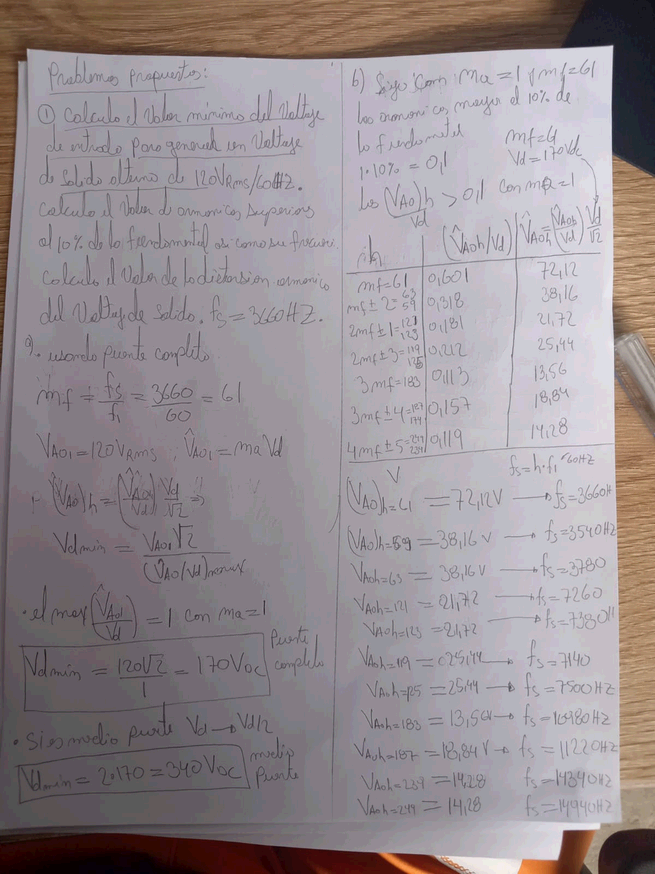 Problemas Propuestos:
① Calcula el Valor mínimo del Voltaje
de entrada para generar un Voltaje
de salida alterno de 120VRms/60HZ.
Calcula el Valor de armonicos superiores
al 10% de la fundamental asi como su frecuen.
Calcula el Valor de la distorsion armonica
del Voltaje de Salida. fs = 3660HZ.
a). usando puente completo
mf = fs/f1 = 3660/60 = 61
VAO1 = 120VRms ; V̂AO1 = ma Vd
(VAO)h = (V̂AOh/Vd) Vd/√2 ⇒
Vdmin = VAO1 √2 / (V̂AO/Vd)max
• el max (V̂AO1/Vd) = 1 con ma = 1
Vdmin = 120√2/1 = 170VDC puente completo
• Si es medio puente Vd → Vd/2
Vdmin = 2·170 = 340VDC medio puente
b) Siga con: ma = 1 y mf = 61
los armonicos mayor al 10% de
la fundamental mf = 61
1·10% = 0,1 Vd = 170Vdc
las (VAO)h/Vd > 0,1 con ma = 1
(V̂AOh/Vd) V̂AOh = (V̂AOh/Vd) Vd/√2
mf = 61 0,601 72,12
mf ± 2 = 63 59 0,318 38,16
2mf ± 1 = 121 123 0,181 21,72
2mf ± 3 = 119 125 0,212 25,44
3mf = 183 0,113 13,56
3mf ± 4 = 187 179 0,157 18,84
4mf ± 5 = 249 239 0,119 14,28
V fs = h·f1 60HZ
(VAO)h=61 = 72,12V → fs = 3660H
(VAO)h=59 = 38,16V → fs = 3540HZ
VAOh=63 = 38,16V → fs = 3780
VAOh=121 = 21,72 → fs = 7260
VAOh=123 = 21,72 → fs = 7380H
VAOh=119 = 25,44 → fs = 7140
VAOh=125 = 25,44 → fs = 7500HZ
VAOh=183 = 13,56V → fs = 10980HZ
VAOh=187 = 18,84V → fs = 11220HZ
VAOh=239 = 14,28 fs = 14340HZ
VAOh=249 = 14,28 fs = 14940HZ